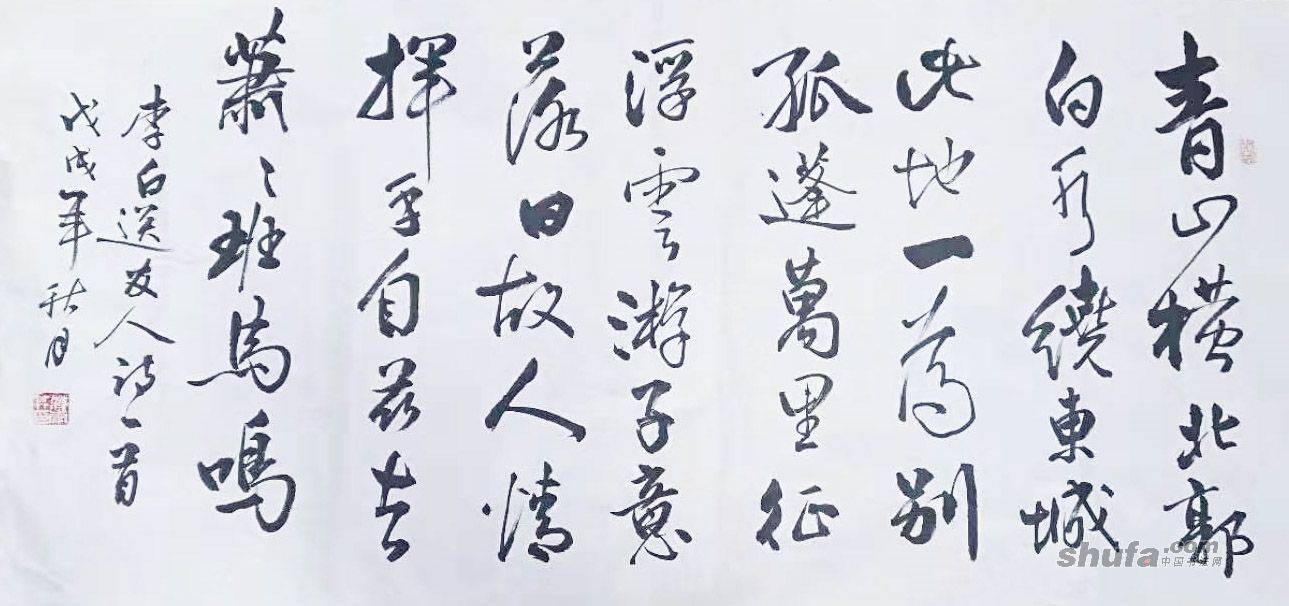 青山橫北郭
白水繞東城
此地一為別
孤蓬萬里征
浮雲游子意
落日故人情
揮手自茲去
蕭〻班馬鳴
李白送友人詩一首
戊戌年秋月
shufa.com
中国书法网